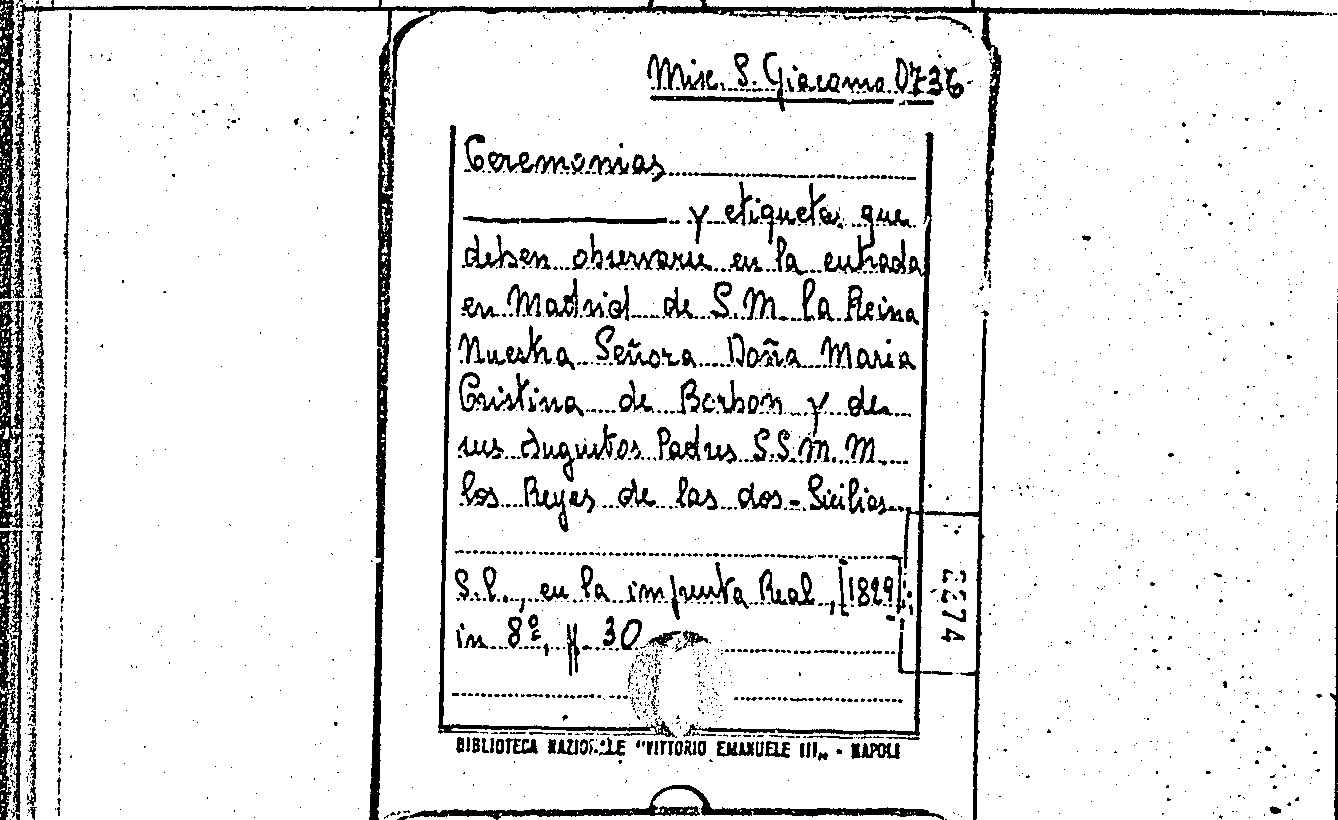 Misc. S. Giacomo D736
Ceremonias
y etiquetas que
deben observarse en la entrada
en Madrid de S.M. la Reina
Nuestra Señora Doña Maria
Cristina de Borbon y de
sus Augustos Padres S.S.M.M.
los Reyes de las dos-Sicilias
S.l., en la imprenta Real, [1829]
in 8º, pp. 30
BIBLIOTECA NAZIONALE "VITTORIO EMANUELE III" - NAPOLI